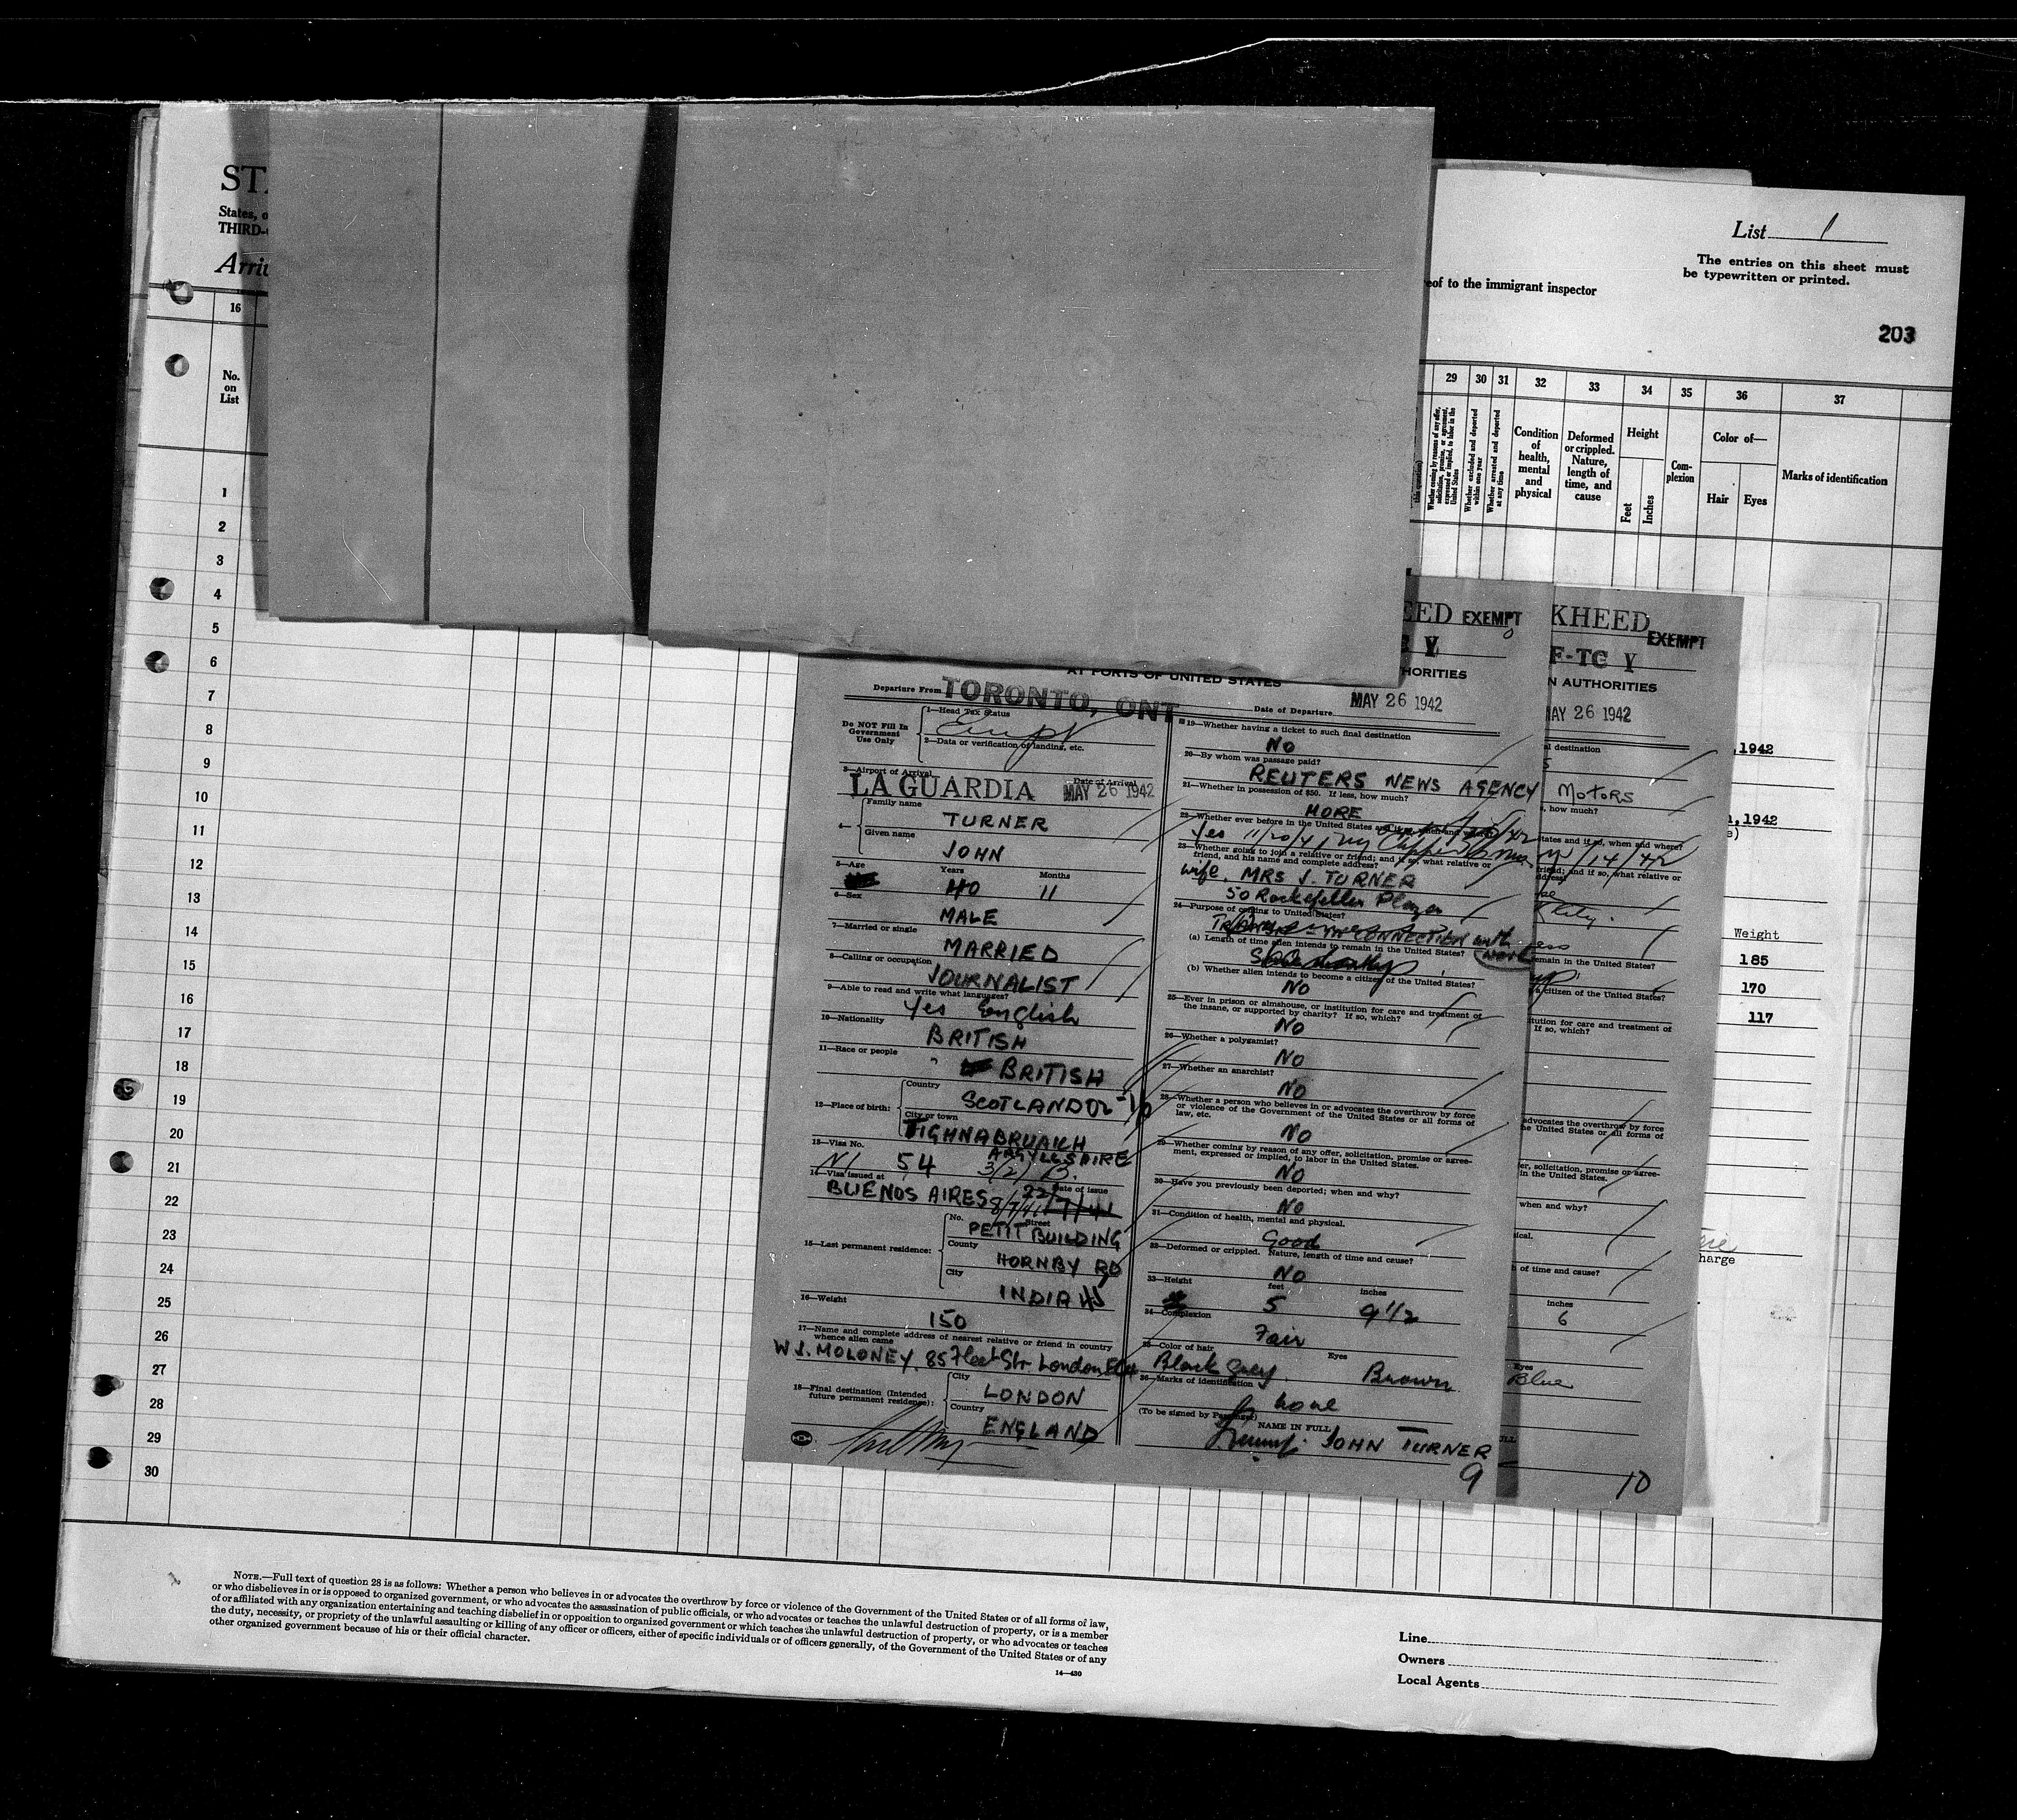 ST
States, o
THIRD-
Arri
List 1
The entries on this sheet must
be typewritten or printed.
eof to the immigrant inspector
203
16
No.
on
List
29 30 31 32 33 34 35 36 37
Whether coming by reasons of any offer, solicitation, promise, or agreement, expressed or implied, to labor in the United States
Whether excluded and deported within one year
Whether arrested and deported at any time
Condition of health, mental and physical
Deformed or crippled. Nature, length of time, and cause
Height
Feet
Inches
Com-
plexion
Color of—
Hair
Eyes
Marks of identification
1
2
3
4
5
6
7
8
9
10
11
12
13
14
15
16
17
18
19
20
21
22
23
24
25
26
27
28
29
30
EED EXEMPT
V
HORITIES
AT PORTS OF UNITED STATES
Departure From TORONTO, ONT
Date of Departure MAY 26 1942
Do NOT Fill In
Government
Use Only
1—Head Tax Status
2—Data or verification of landing, etc.
3—Airport of Arrival
Date of Arrival
LA GUARDIA MAY 26 1942
4—
Family name
TURNER
Given name
JOHN
5—Age
Years Months
40 11
6—Sex
MALE
7—Married or single
MARRIED
8—Calling or occupation
JOURNALIST
9—Able to read and write what languages?
Yes English
10—Nationality
BRITISH
11—Race or people
BRITISH
12—Place of birth:
Country
SCOTLAND
City or town
TIGHNABRUAICH
ARGYLLSHIRE
13—Visa No.
54
14—Visa issued at
Date of issue
BUENOS AIRES
15—Last permanent residence:
No. Street
PETIT BUILDING
County
HORNBY RD
City
INDIA
16—Weight
150
17—Name and complete address of nearest relative or friend in country
whence alien came
W J. MOLONEY, 85 Fleet Str. London
18—Final destination (Intended
future permanent residence):
City
LONDON
Country
ENGLAND
19—Whether having a ticket to such final destination
NO
20—By whom was passage paid?
REUTERS NEWS AGENCY
21—Whether in possession of $50. If less, how much?
MORE
22—Whether ever before in the United States and if so, when and where?
Yes 11/20/41 ny Clipper
23—Whether going to join a relative or friend; and if so, what relative or
friend, and his name and complete address?
wife, MRS J. TURNER
50 Rockefeller Plaza
24—Purpose of coming to United States?
CONNECTION with
work
(a) Length of time alien intends to remain in the United States?
(b) Whether alien intends to become a citizen of the United States?
NO
25—Ever in prison or almshouse, or institution for care and treatment of
the insane, or supported by charity? If so, which?
NO
26—Whether a polygamist?
NO
27—Whether an anarchist?
NO
28—Whether a person who believes in or advocates the overthrow by force
or violence of the Government of the United States or all forms of
law, etc.
NO
29—Whether coming by reason of any offer, solicitation, promise or agree-
ment, expressed or implied, to labor in the United States.
NO
30—Have you previously been deported; when and why?
NO
31—Condition of health, mental and physical.
Good
32—Deformed or crippled. Nature, length of time and cause?
NO
33—Height
feet inches
5 9 1/2
34—Complexion
Fair
35—Color of hair Eyes
Black Grey Brown
36—Marks of identification
none
(To be signed by Passenger)
NAME IN FULL
JOHN TURNER
9
KHEED EXEMPT
F-TC V
N AUTHORITIES
MAY 26 1942
al destination
MOTORS
, how much?
tates and if so, when and where?
1/14/42
friend; and if so, what relative or
ddress?
City.
remain in the United States?
citizen of the United States?
itution for care and treatment of
If so, which?
advocates the overthrow by force
he United States or all forms of
er, solicitation, promise or agree-
in the United States.
when and why?
ical.
h of time and cause?
inches
6
Eyes
Blue
10
,1942
,1942
Weight
185
170
117
harge
NOTE.—Full text of question 28 is as follows: Whether a person who believes in or advocates the overthrow by force or violence of the Government of the United States or of all forms of law,
or who disbelieves in or is opposed to organized government, or who advocates the assassination of public officials, or who advocates or teaches the unlawful destruction of property, or is a member
of or affiliated with any organization entertaining and teaching disbelief in or opposition to organized government or which teaches the unlawful destruction of property, or who advocates or teaches
the duty, necessity, or propriety of the unlawful assaulting or killing of any officer or officers, either of specific individuals or of officers generally, of the Government of the United States or of any
other organized government because of his or their official character.
14—430
Line
Owners
Local Agents